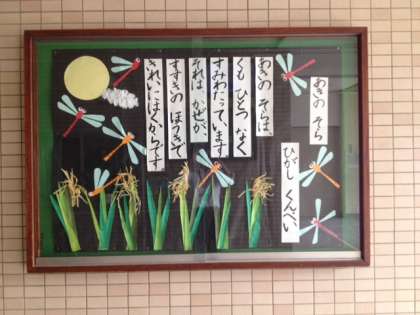 あきの そら
ひがし くんぺい
あきの そらは、
くも ひとつ なく
すみわたっています
それは かぜが、
すすきの ほうきで
きれいに はくからです